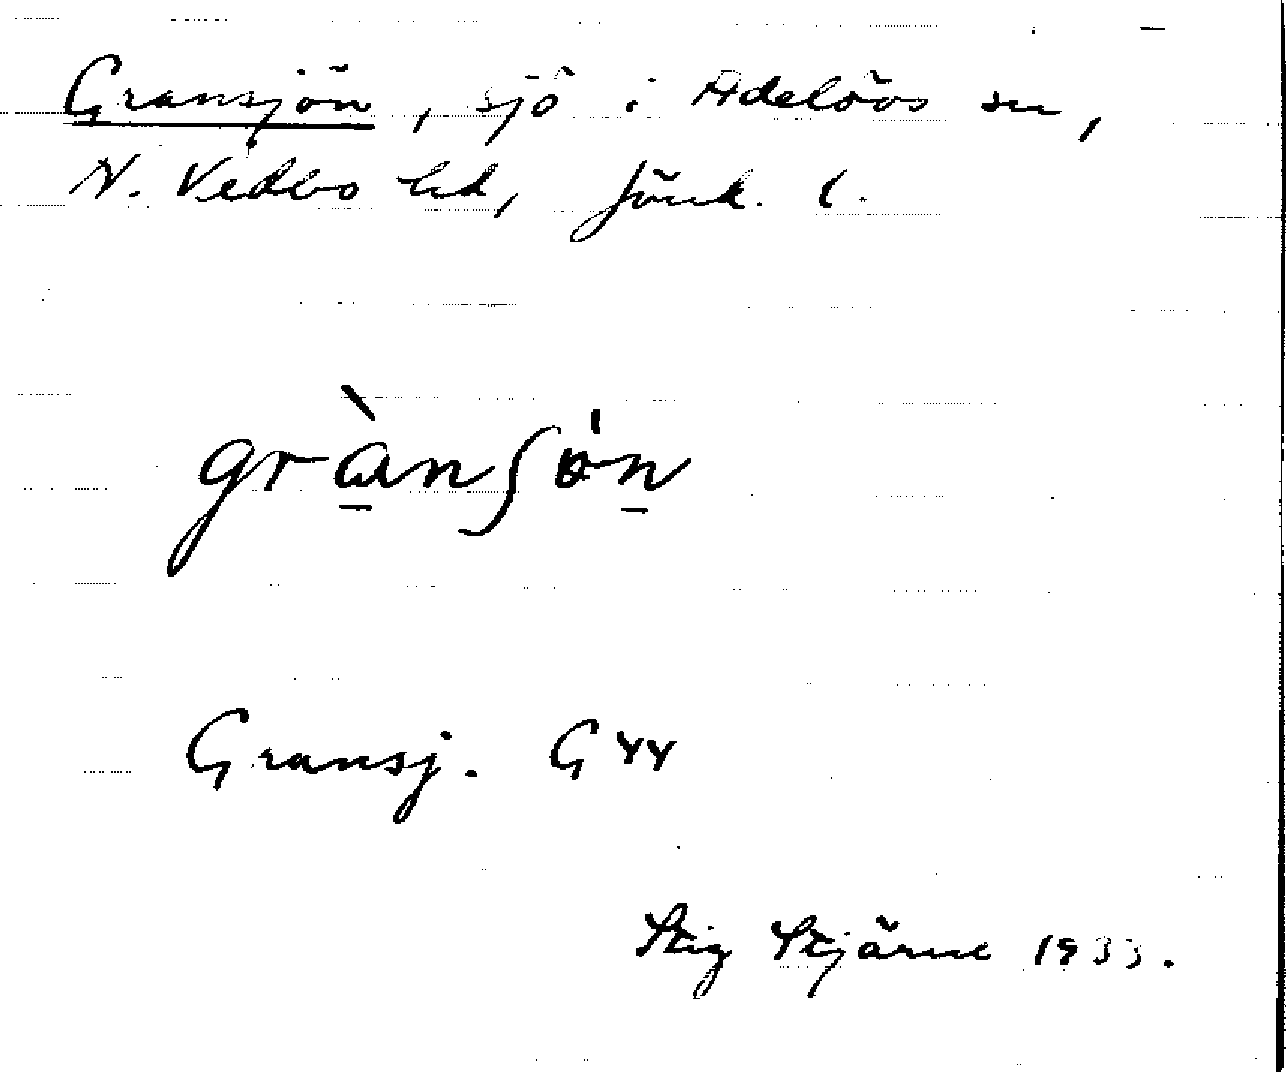 Gransjön, sjö i Adelövs sn,
N. Vedbo hd, Jönk. l.
grànʃön
Gransj. G44
Stig Stjärne 1933.